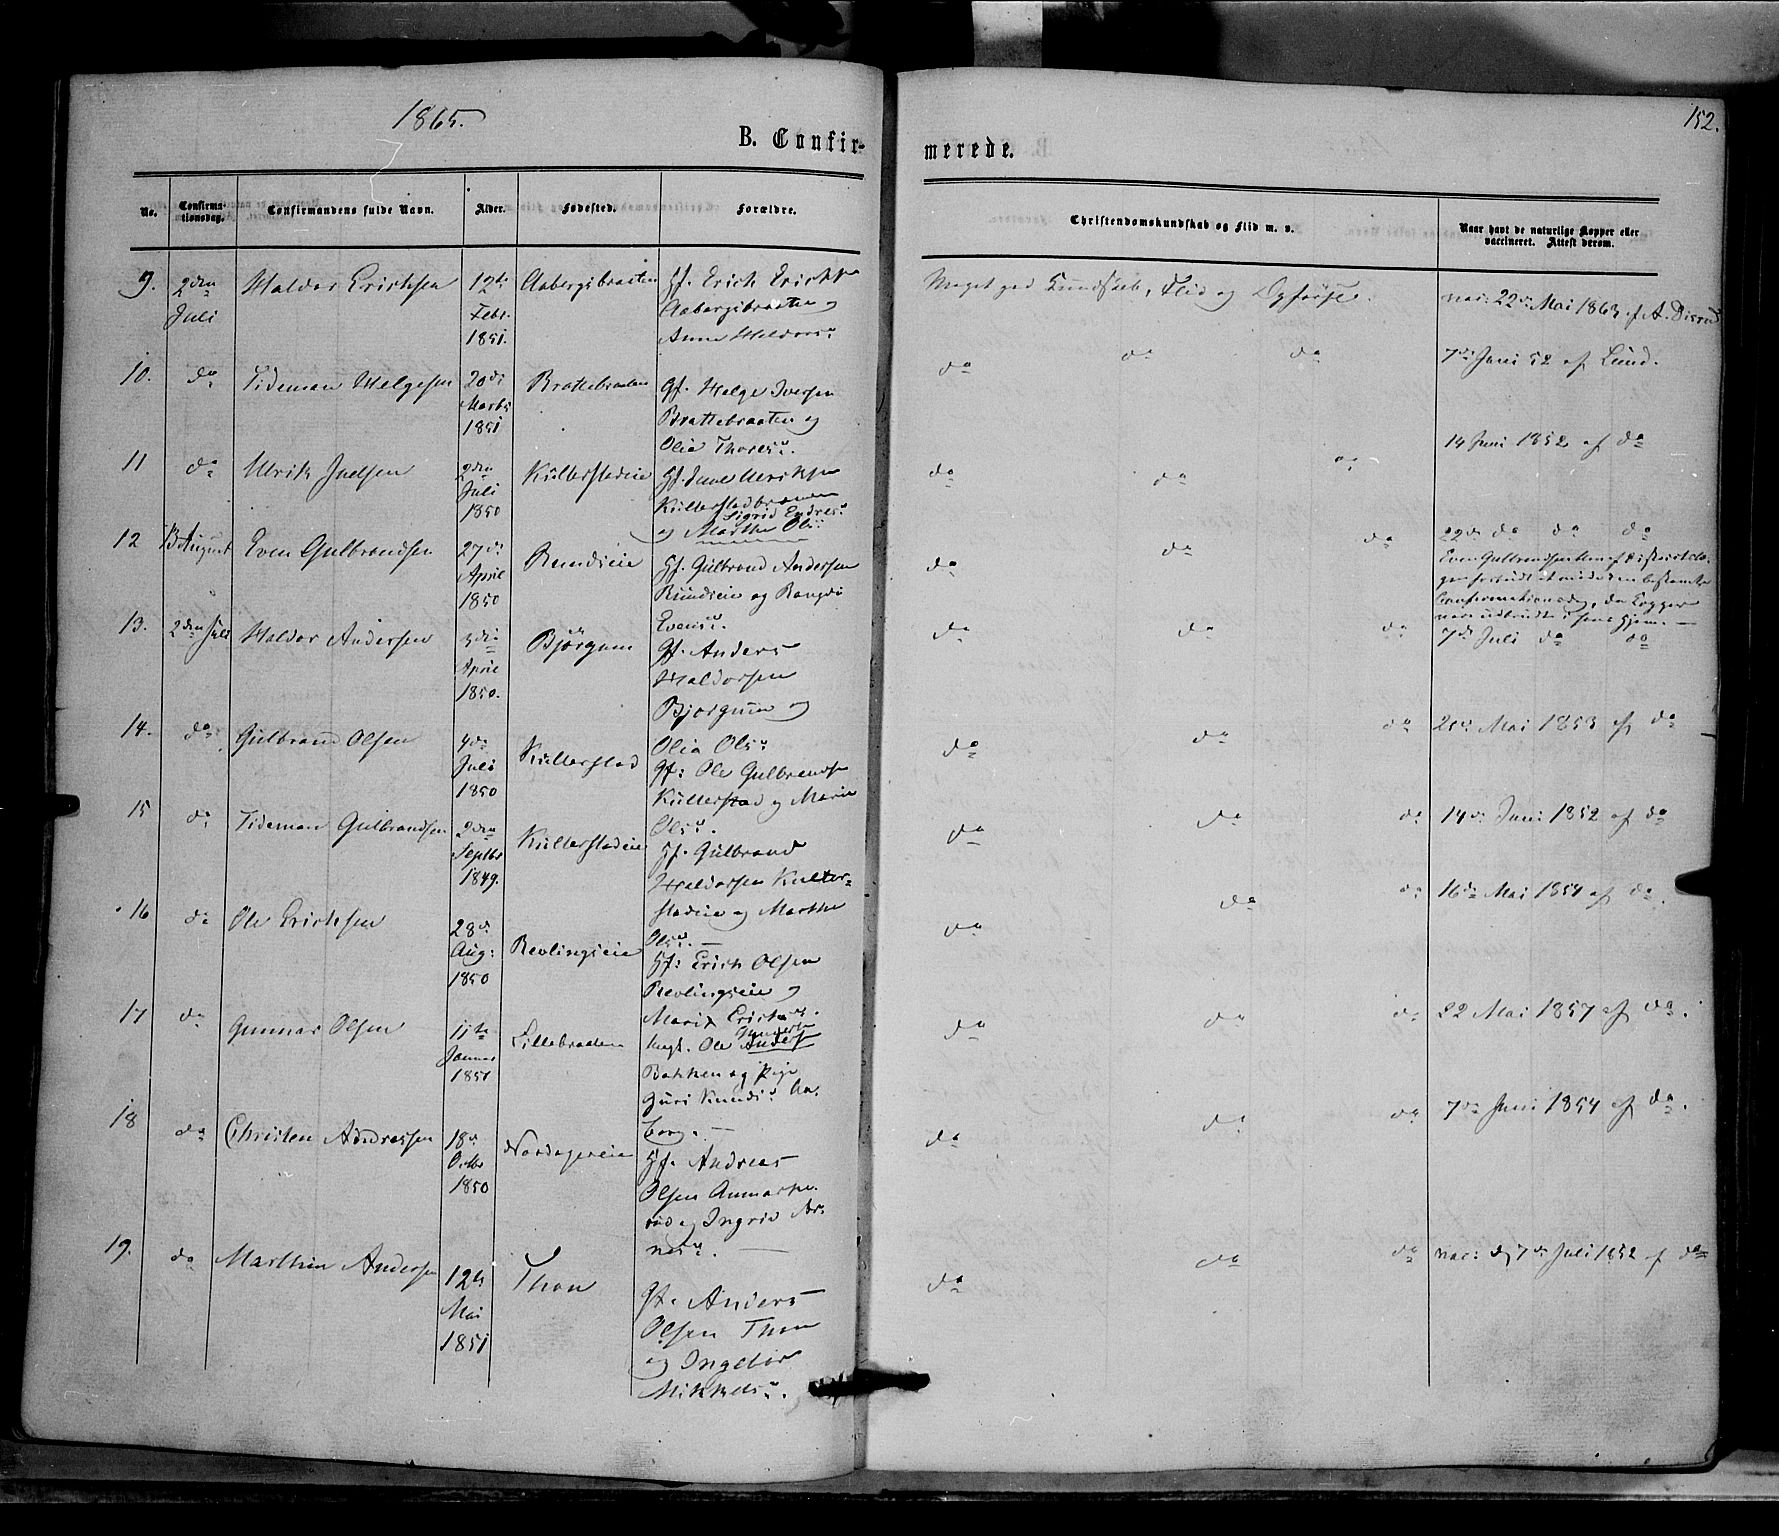 1865.
152.
B. Confir-
merede.
No.
Confirma-
tionsdag.
Confirmandens fulde Navn.
Alder.
Fødested.
Forældre.
Christendomskundskab og Flid m. v.
Naar havt de naturlige Kopper eller
vaccineret. Attest derom.
9.
2den
Juli
Haldor Erichsen
12te
Febr.
1851.
Aabergsbraaten
Gf. Erich Erichs
Aabergsbraaten og
Anne Haldors.
Meget god Kundskab, Flid og Opførsel.
vac: 22de Mai 1863 af A.
10.
do
Tideman Helgesen
20de
Marts
1851
Brattebraaten
Gf. Helge Iversen
Brattebraaten og
Olia Thoresd.
do
do
do
7de Juni 52 af Lund.
11
do
Ulrik Juelsen
2den
Juli
1850
Kullerstadeie
Gf. Juul Ulriksen
Kullerstadbraaten
Sigrid Endresd
og Marthe Olsd
do
do
do
14 Juni 1852 af do
12
13 August
Even Gulbrandsen
27de
April
1850
Rundseie
Gf. Gulbrand Andersen
Rundseie og Rangdi
Evensd.
do
do
do
22de do do do
Even Gulbrandsen blev af Districtslæ-
gen forbudt at møde den bestemte
Confirmationsdag, da Kopper
vare udbrudt i hans Hjem. —
13.
2den Juli
Haldor Andersen
3die
April
1850.
Bjørgum
Gf. Anders
Haldorsen
Bjørgum og
Olia Olsd
do
do
do
7de Juli do do
14.
do
Gulbrand Olsen
4de
Juli
1850
Kullerstad
Gf: Ole Gulbrands
Kullerstad og Marie
Olsd.
do
do
do
20de Mai 1853 af do
15
do
Tideman Gulbrandsen
2den
Septbr
1849.
Kullerstadeie
Gf. Gulbrand
Haldorsen Kuller-
stadeie og Marthe
Olsd. —
do
do
do
14de Juni 1852 af do
16
do
Ole Erichsen
28de
Aug:
1850
Revlingseie
Gf: Erich Olsen
Revlingseie og
Marie Erichsd.
do
do
do
16de Mai 1854 af do.
17
do
Gunnar Olsen
11te
Januar
1851
Lillebraaten
Ungk. Ole Anders
Bakken og Pige
Guri Knudsd. Aa-
berg. —
do
do
do
22 Mai 1857 af do.
18
do
Christen Andreassen
18de
Octbr
1850
Nordagereie
Gf. Andreas
Olsen
og Ingrid Ar-
nesd. —
do
do
do
7de Juni 1854 af do.
19.
do
Marthin Andersen
12te
Mai
1851
Thon
Gf. Anders
Olsen Thon
og Ingebor
Mikkelsd.
do
do
do
vac: d 7de Juli 1852 af do